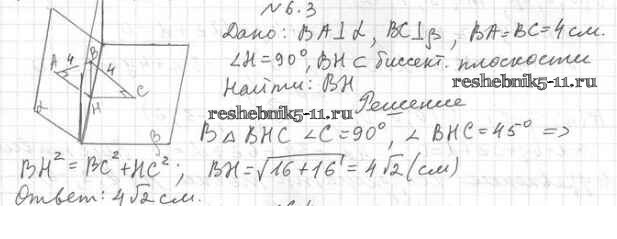 N 6.3
Дано: BA⊥α, BC⊥β, BA=BC=4см.
∠H=90°, BH ⊂ биссект. плоскости
Найти: BH
reshebnik5-11.ru
reshebnik5-11.ru
Решение
A 4 B 4 C H α β
В △ BHC ∠C=90°, ∠BHC=45° =>
BH²=BC²+HC²; BH=√16+16=4√2(см)
Ответ: 4√2 см.